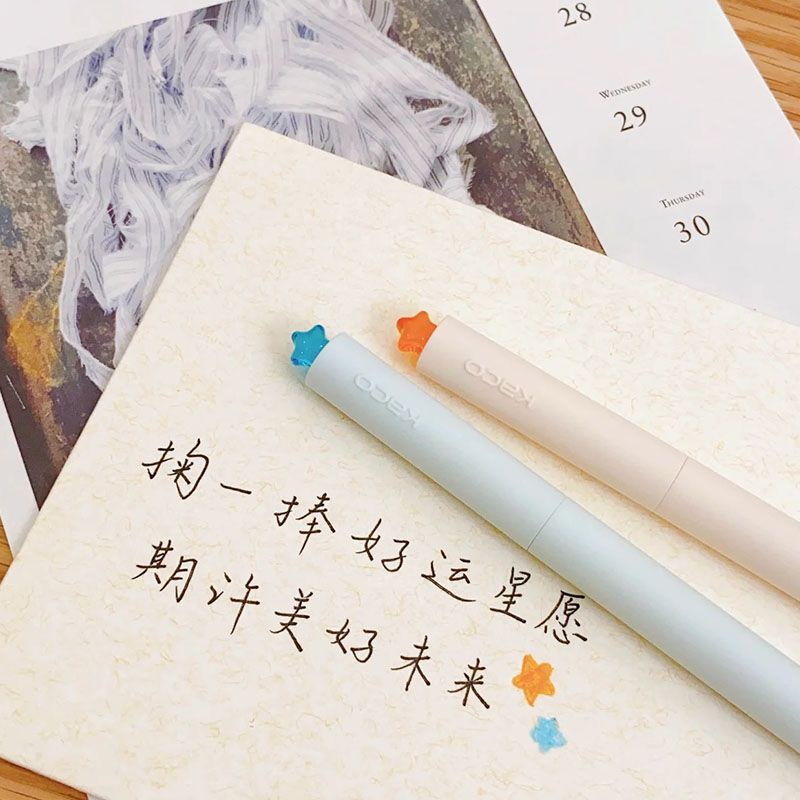 28
WEDNESDAY
29
THURSDAY
30
KACO
KACO
掬一捧好运星愿
期许美好未来